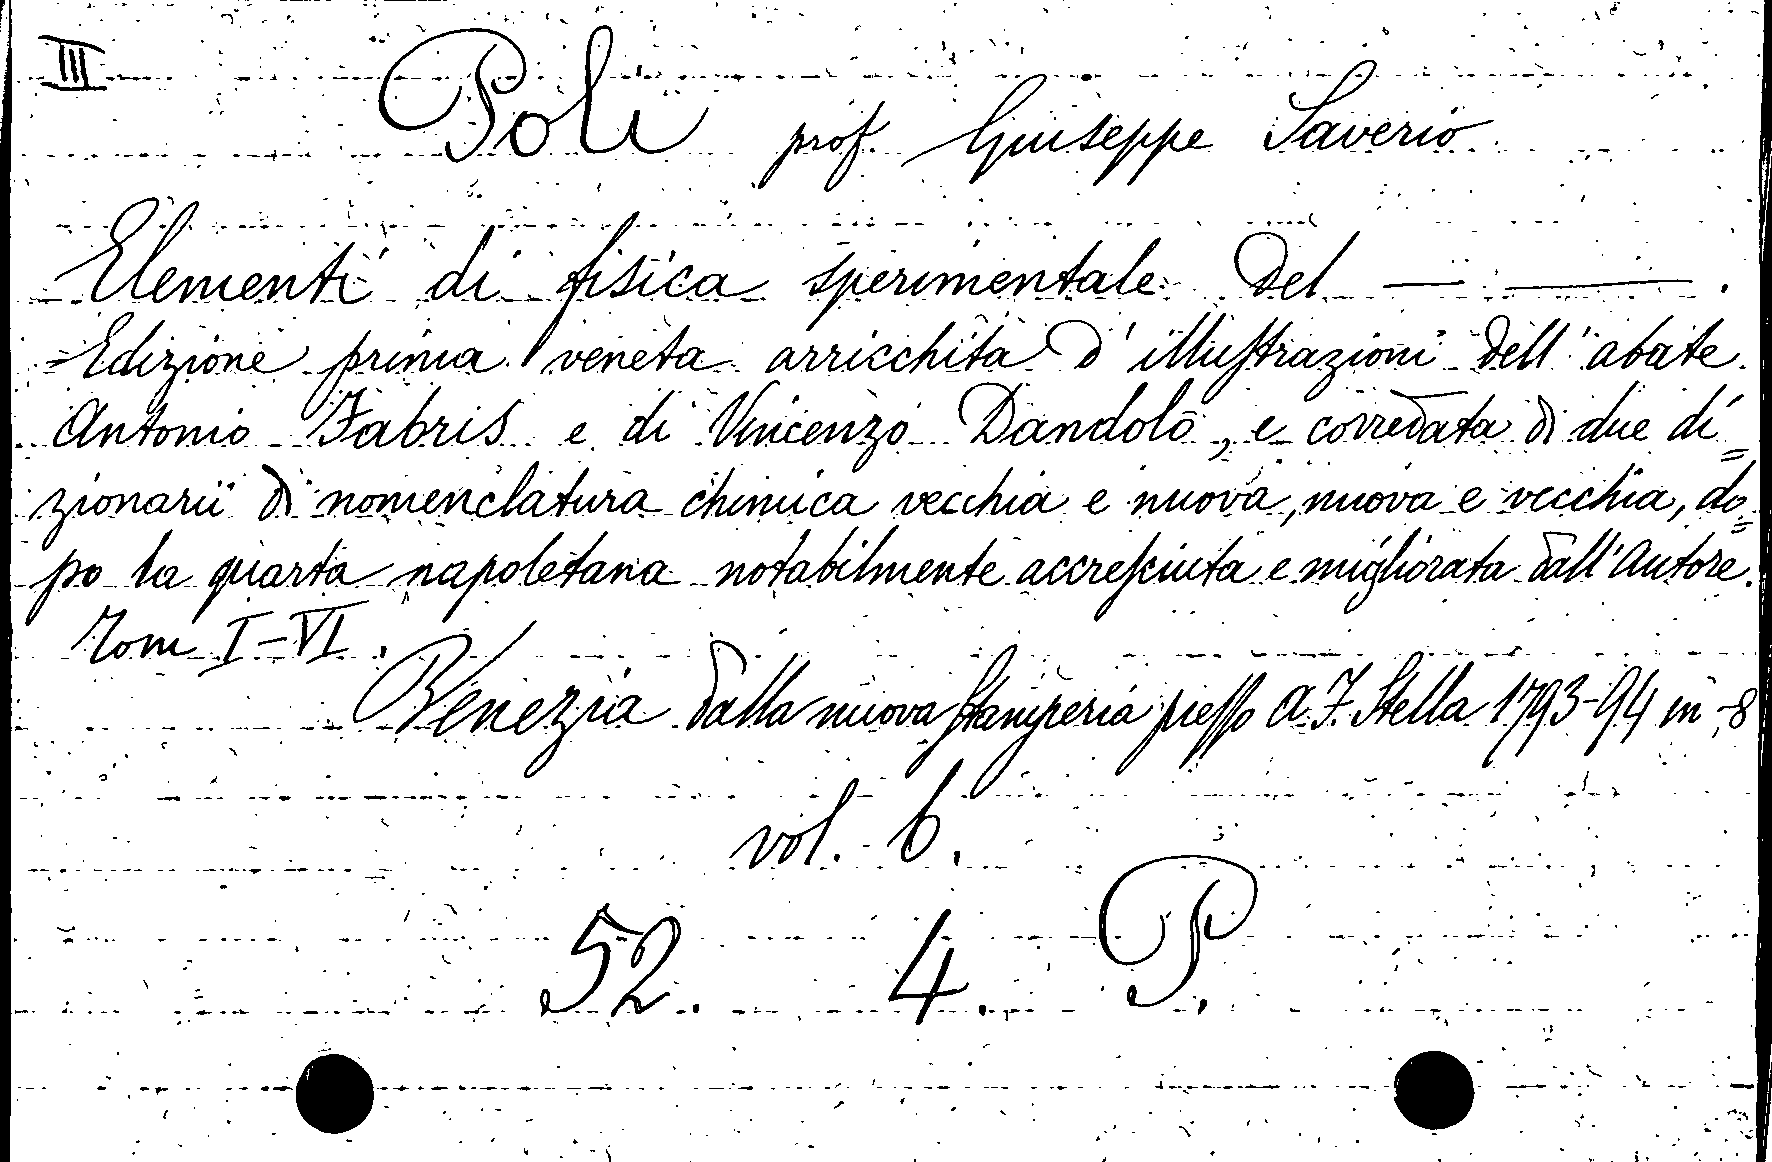 III
Poli prof. Giuseppe Saverio
Elementi di fisica sperimentale del — —— .
Edizione prima veneta arricchita d'illustrazioni dell'abate
Antonio Fabris e di Vincenzo Dandolo, e corredata di due di=
zionarii di nomenclatura chimica vecchia e nuova, nuova e vecchia, do=
po la quarta napoletana notabilmente accresciuta e migliorata dall'Autore.
Tom I-VI.
Venezia dalla nuova stamperia presso A. F. Stella 1793-94 in -8
vol. 6.
52. 4. P.